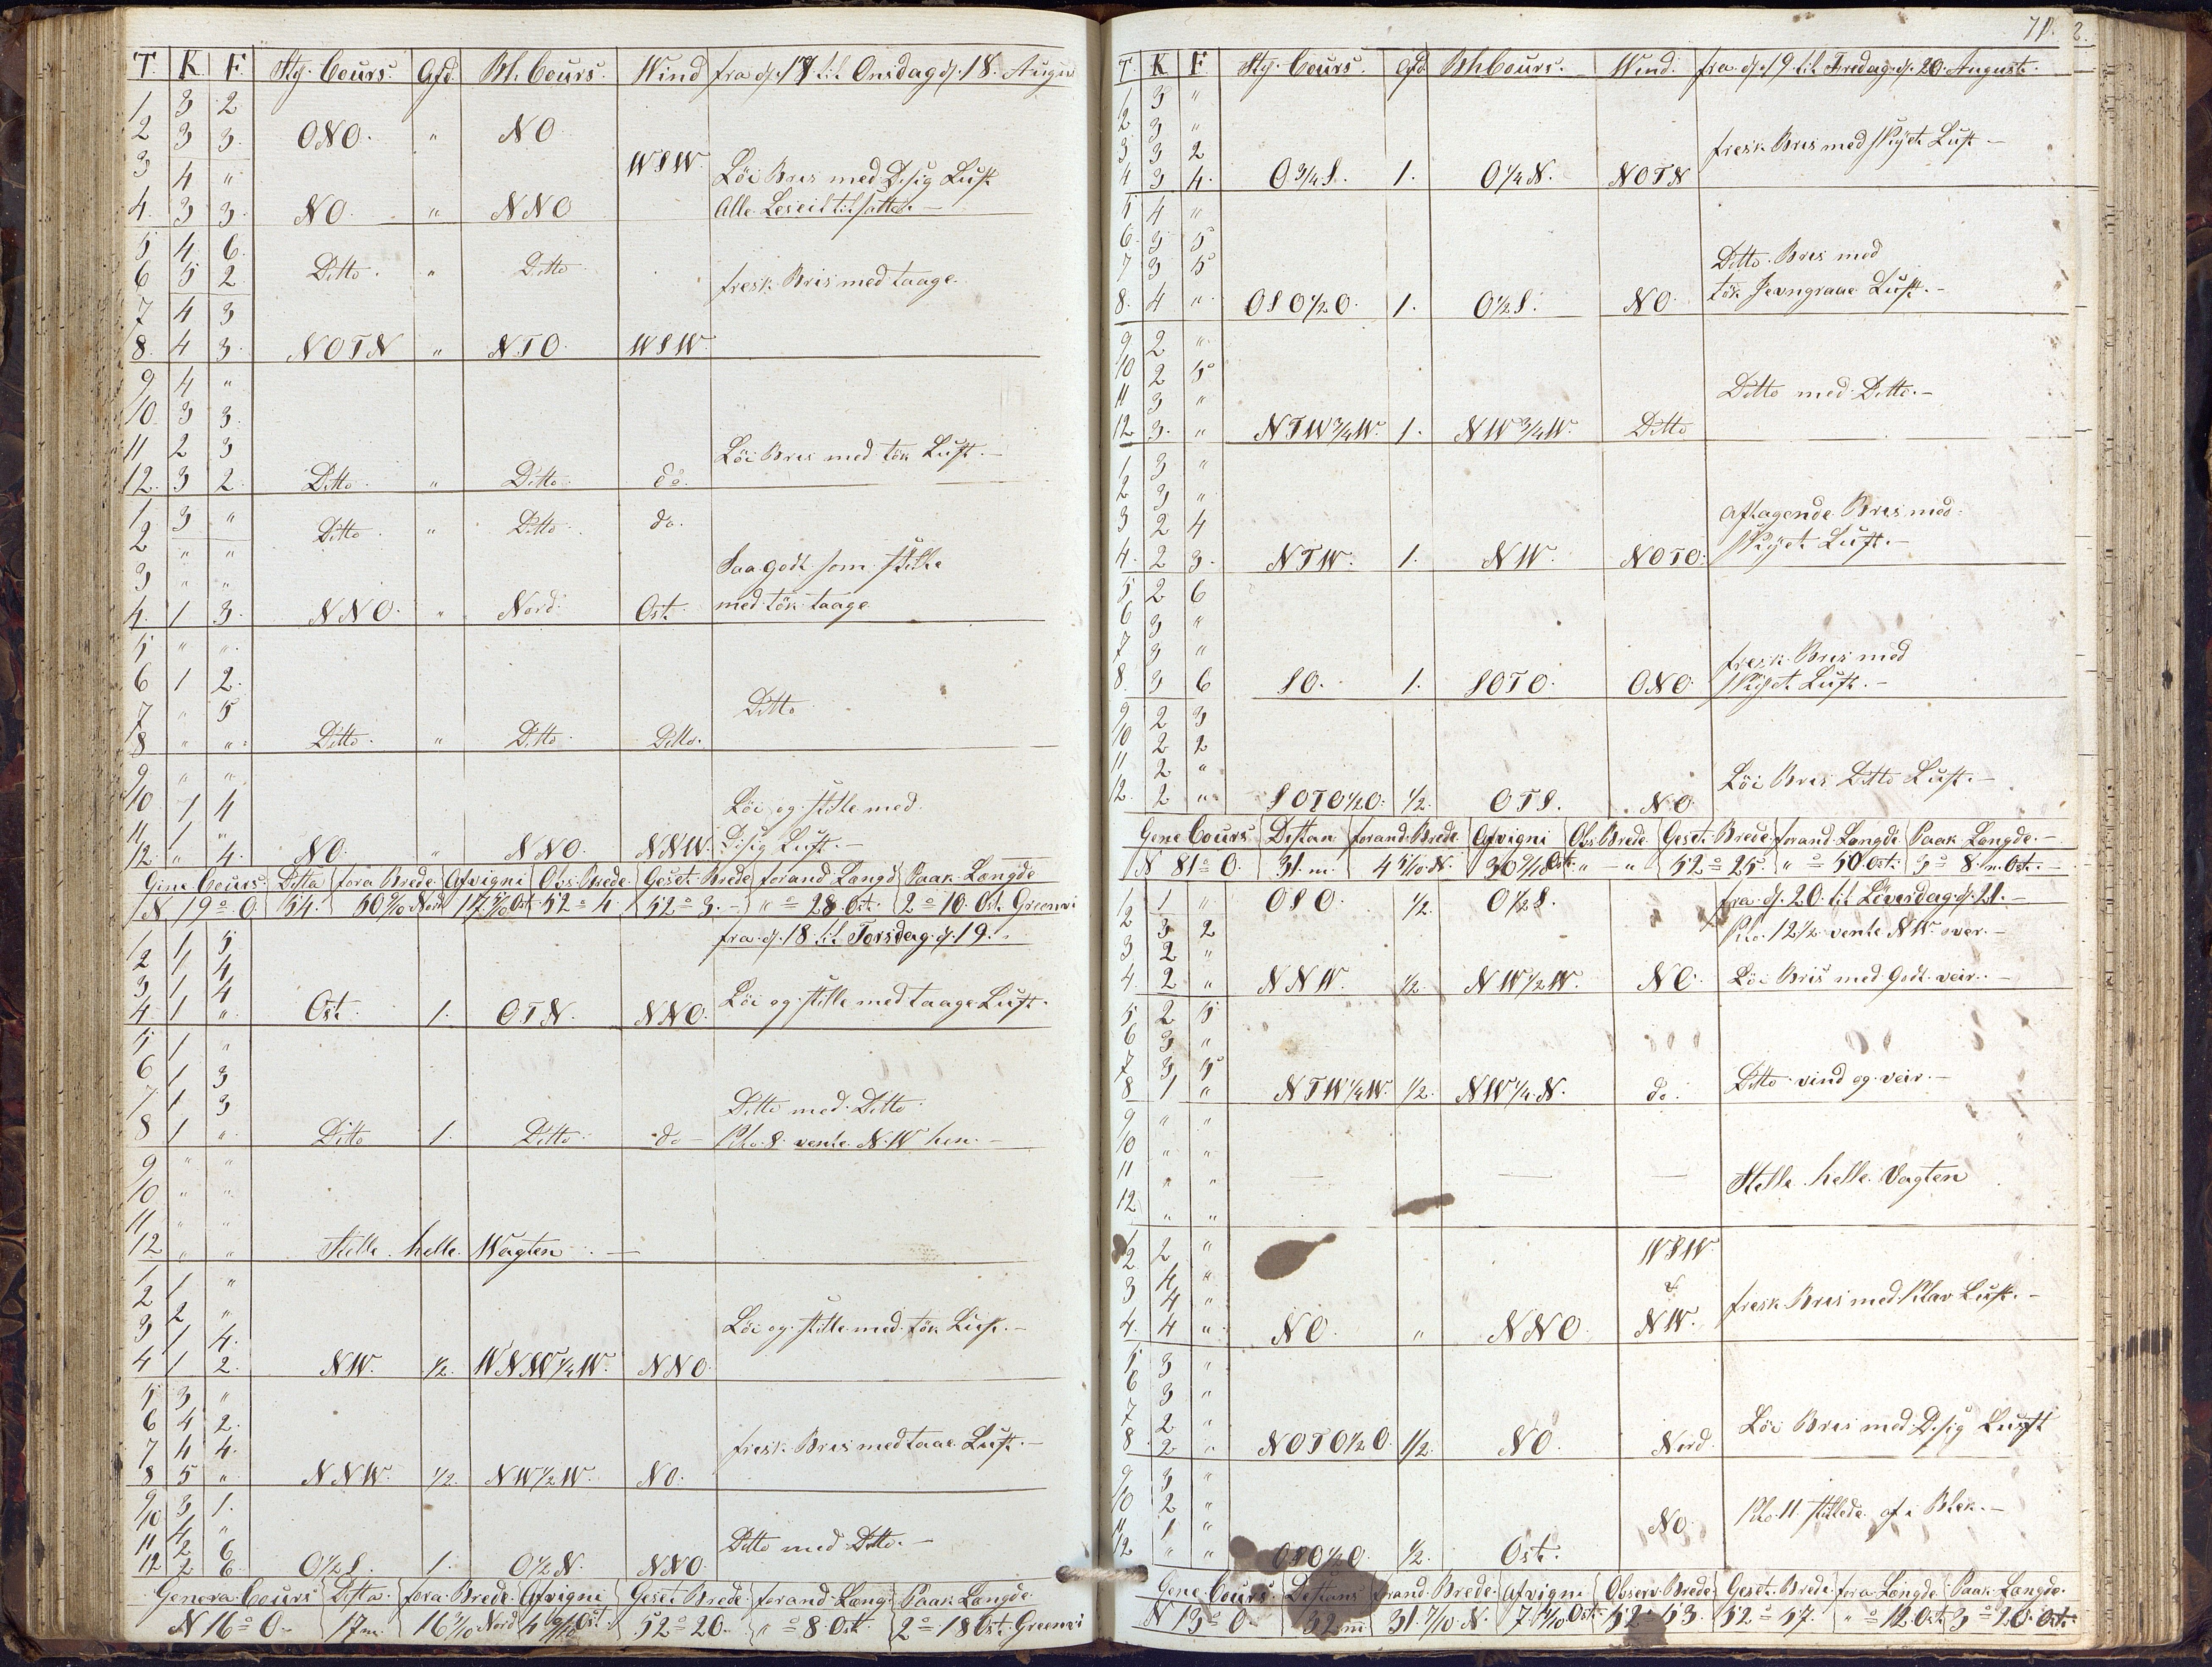 T. K. F. Stg. Cours. Afd. Bh. Cours. Wind fra d. 17 til Onsdag d. 18. August
1 3 2
2 3 3. ONO. " NO
3 4 " WSW. Löi Bris med Disig Luft
4. 3 3. NO. " NNO Alle Leseil tilsatte. –
5 4 6.
6 5 2 Ditto. " Ditto fresk Bris med taage.
7 4 3
8. 4 3. NOTN " NTO. WSW.
9 4 "
10. 3 3.
11 2 3 Löi Bris med tök Luft. –
12. 3 2. Ditto. " Ditto. do.
1 3 " Ditto. " Ditto. do.
2 " "
3 " " Saa godt som stille
4. 1 3. NNO. " Nord. Ost. med tök taage
5 " ".
6 1 2.
7 " 5 Ditto
8 " ". Ditto. " Ditto. Ditto.
9 " "
10. 1 4 Löi og stille med
11 1 "
12. " 4. NO. " NNO. NNW. Disig Luft. –
Gene Cours. Ditta fora Brede. Afvigni Obs. Brede. Geset Brede forand Længd Paak Længde
N 19° O. 54. 50 9/10 Nord 17 5/10 Ost. 52° 4. 52° 3. – "° 28 Ost. 2° 10. Ost. Greenwi
fra d. 18 til Torsdag d. 19. –
1 1 5
2 1 4
3 1 4 Löi og stille med taage Luft.
4 1 " Ost. 1. OTN. NNO.
5 1 "
6 1 3
7 1 3 Ditto med Ditto.
8 1 ". Ditto 1. Ditto. do – Klo. 8. vente N.W hen. –
9 " "
10 " ".
11 " "
12 " " Stille helle Wagten. –
1 1 "
2 2 "
3 1 4. Löi og stille med tök Luft. –
4 1 2. NW. 1/2. WNW 1/4 W. NNO.
5 3 "
6 4 2.
7 4 4. fresk Bris med taae Luft. –
8 5 ". NNW. 1/2. NW 1/2 W. NO.
9 3 1.
10 4 "
11 2 6 Ditto med Ditto. –
12. 2 6. O 1/2 S. 1. O 1/2 N. NNO.
Genera Cours Ditta. fora Brede. Afvigni Geset Brede. forand Læng. Paak Længde
N 16° O – 17 m. 16 3/10 Nord 4 9/10 Ost. 52° 20. – "° 8 Ost. 2° 18 Ost. Greenwi
71. 2.
T K F. Stg. Cours. Afd Bh Cours. Wind. fra d. 19 til Fredag d. 20. August.
1 3 "
2 3 " fresk Bris med skyet Luft –
3 3 2
4 3 4. O 3/4 S. 1. O 1/4 N. NOTN
5 4 "
6. 3 5
7 3 5 Ditto. Bris med
8. 4 ". OSO 1/2 O. 1. O 1/2 S. NO. tök Jevngraae Luft. –
9 2 "
10 2 5 Ditto med Ditto. –
11 3 "
12 3. " NTW 3/4 W. 1. NW 3/4 W. Ditto
1 3 "
2 3 "
3 2 4 aftagende Bris med
4. 2 3. NTW. 1. NW. NOTO. skyet Luft. –
5 2 6
6 3 "
7 3 " fresk Bris med
8. 3 6 SO. 1. SOTO. ONO. skyet Luft. –
9 2 3
10 2 2
11 2 " Löi Bris Ditto Luft. –
12. 2 ". SOTO 1/2 O. 1/2. OTS. NO.
Gene Cours Distan forand Brede. Afvigni Obs Brede Geset Brede. forand Længde Paak Længde. –
N 81° O. 31. m. 4 5/10 N. 30 9/10 Ost. " – " 52° 25. "° 50 Ost. 3° 8 m Ost. –
fra d. 20. til Löverdag d. 21. –
1 1 " OSO. 1/2. O 1/2 S.
2 3 2 Klo. 12 1/2 vente NW over. –
3 2 "
4. 2 " NNW. 1/2. NW 1/2 W. NO. Löi Bris med Godt veir. –
5 2 5
6 3 "
7 3 5 Ditto vind og veir. –
8 1 " NTW 1/4 W. 1/2. NW 1/4 N. do.
9 " "
10 " "
11 " " Stille helle Vagten
12 " "
1 2 " WSW
2 4 " &
3 4 " fresk Bris med Klar Luft. –
4. 4 ". NO. " NNO. NW.
5 3 "
6 3 "
7 2 " Löi Bris med Disig Luft
8 2 ". NOTO 1/2 O. 1/2. NO. Nord.
9 3 "
10 2 " Klo. 11. stillede af i Blek. –
11 1 " NO.
12 " " OSO 1/2 O. 1/2. Ost.
Gene Cours. Distans forand Brede. Afvigni Observ Brede. Geset. Brede. fora Længde. Paak Længde.
N 13° O. 32 m 31 7/10 N. 7 3/10 Ost. 52° 53. 52° 57. "° 12. Ost 3° 20 Ost.